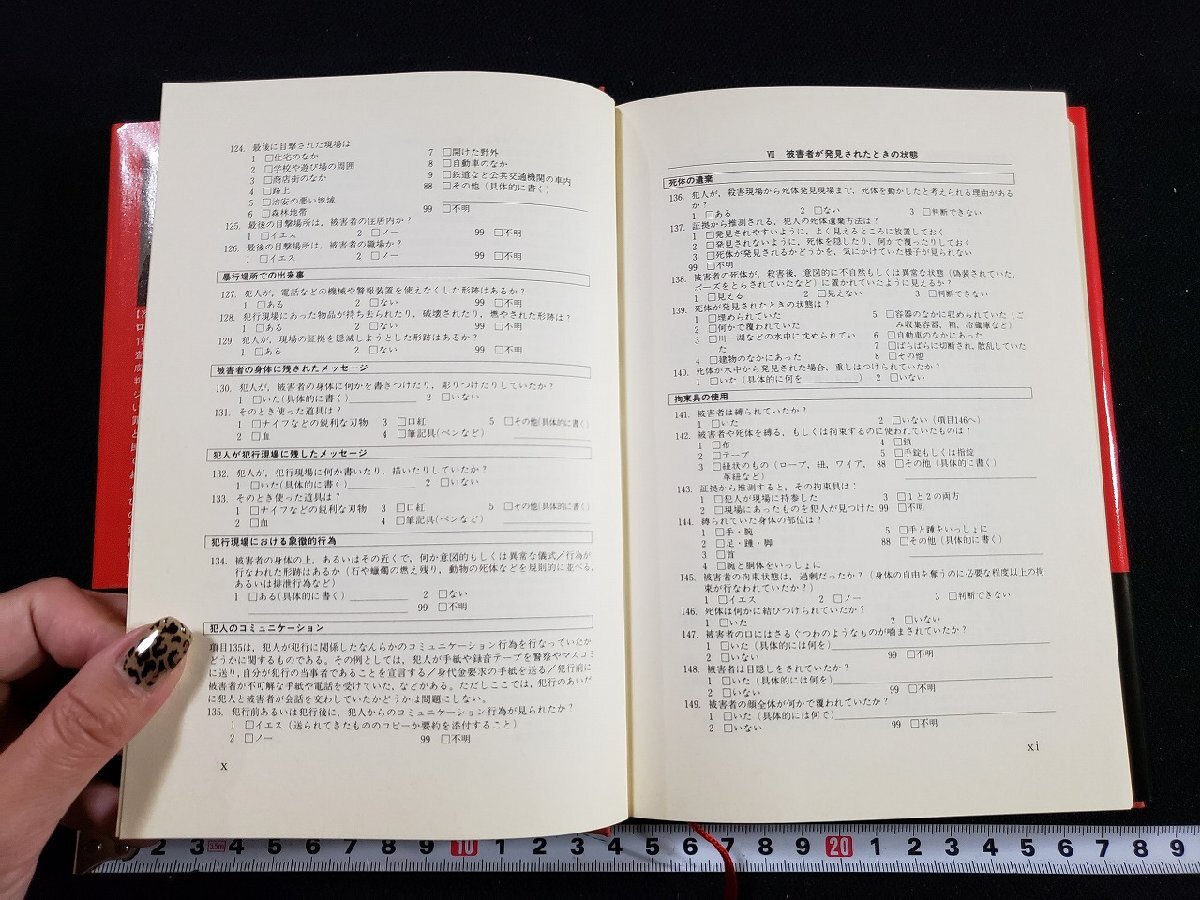 124. 最後に目撃された現場は
1 □住宅のなか
2 □学校や遊び場の周囲
3 □商店街のなか
4 □路上
5 □治安の悪い地域
6 □森林地帯
7 □開けた野外
8 □自動車のなか
9 □鉄道など公共交通機関の車内
88 □その他 (具体的に書く)
99 □不明
125. 最後の目撃場所は、被害者の住居内か?
1 □イエス 2 □ノー 99 □不明
126. 最後の目撃場所は、被害者の職場か?
□イエス 2 □ノー 99 □不明
暴行場所での出来事
127. 犯人が、電話などの機械や警報装置を使えなくした形跡はあるか?
1 □ある 2 □ない 99 □不明
128. 犯行現場にあった物品が持ち去られたり、破壊されたり、燃やされた形跡は?
1 □ある 2 □ない 99 □不明
129 犯人が、現場の証拠を隠滅しようとした形跡はあるか?
1 □ある 2 □ない 99 □不明
被害者の身体に残されたメッセージ
130. 犯人が、被害者の身体に何かを書きつけたり、彫りつけたりしていたか?
1 □いた(具体的に書く) 2 □いない
131. そのとき使った道具は?
1 □ナイフなどの鋭利な刃物 3 □口紅 5 □その他(具体的に書く)
2 □血 4 □筆記具(ペンなど)
犯人が犯行現場に残したメッセージ
132. 犯人が、犯行現場に何か書いたり、描いたりしていたか?
1 □いた(具体的に書く) 2 □いない
133. そのとき使った道具は?
1 □ナイフなどの鋭利な刃物 3 □口紅 5 □その他(具体的に書く)
2 □血 4 □筆記具(ペンなど)
犯行現場における象徴的行為
134. 被害者の身体の上、あるいはその近くで、何か意図的もしくは異常な儀式/行為が
行なわれた形跡はあるか (石や蠟燭の燃え残り、動物の死体などを規則的に並べる、
あるいは排泄行為など)
1 □ある(具体的に書く) 2 □ない
99 □不明
犯人のコミュニケーション
項目135は、犯人が犯行に関係したなんらかのコミュニケーション行為を行なっていたか
どうかに関するものである。その例としては、犯人が手紙や録音テープを警察やマスコミ
に送り、自分が犯行の当事者であることを宣言する/身代金要求の手紙を送る/犯行前に
被害者が不可解な手紙や電話を受けていた、などがある。ただしここでは、犯行のあいだ
に犯人と被害者が会話を交わしていたかどうかは問題にしない。
135. 犯行前あるいは犯行後に、犯人からのコミュニケーション行為が見られたか?
□イエス (送られてきたもののコピーか要約を添付すること)
2 □ノー 99 □不明
x
Ⅶ 被害者が発見されたときの状態
死体の遺棄
136. 犯人が、殺害現場から死体発見現場まで、死体を動かしたと考えられる理由がある
か?
1 □ある 2 □ない 3 □判断できない
137. 証拠から推測される、犯人の死体遺棄方法は?
1 □発見されやすいように、よく見えるところに放置しておく
2 □発見されないように、死体を隠したり、何かで覆ったりしておく
3 □死体が発見されるかどうかを、気にかけていた様子が見られない
99 □不明
138. 被害者の死体が、殺害後、意図的に不自然もしくは異常な状態 (偽装されていた、
ポーズをとらされていたなど) に置かれていたように見えるか?
1 □見える 2 □見えない 3 □判断できない
139. 死体が発見されたときの状態は?
1 □埋められていた
2 □何かで覆われていた
3 □川、湖などの水中に沈められてい
た
4 □建物のなかにあった
5 □容器のなかに収められていた (ご
み収集容器、箱、冷蔵庫など)
6 □自動車のなかにあった
7 □ばらばらに切断され、散乱していた
8 □その他
140. 死体が水中から発見された場合、重しはつけられていたか?
1 □いた (具体的に何を) 2 □いない
拘束具の使用
141. 被害者は縛られていたか?
1 □いた 2 □いない (項目146へ)
142. 被害者や死体を縛る、もしくは拘束するのに使われていたものは?
1 □布 4 □鎖
2 □テープ 5 □手錠もしくは指錠
3 □紐状のもの (ロープ、紐、ワイア、 88 □その他 (具体的に書く)
革紐など)
143. 証拠から推測すると、その拘束具は?
1 □犯人が現場に持参した 3 □1と2の両方
2 □現場にあったものを犯人が見つけた 99 □不明
144. 縛られていた身体の部位は?
1 □手・腕 5 □手と踵をいっしょに
2 □足・踵・脚 88 □その他 (具体的に書く)
3 □首
4 □腕と胴体をいっしょに
145. 被害者の拘束状態は、過剰だったか? (身体の自由を奪うのに必要な程度以上の拘
束が行なわれていたか?)
1 □イエス 2 □ノー 3 □判断できない
146. 死体は何かに結びつけられていたか?
1 □いた 2 □いない
147. 被害者の口にはさるぐつわのようなものが嚙まされていたか?
1 □いた (具体的には何を)
2 □いない 99 □不明
148. 被害者は目隠しをされていたか?
1 □いた (具体的には何を)
2 □いない 99 □不明
149. 被害者の顔全体が何かで覆われていたか?
1 □いた (具体的には何で)
2 □いない 99 □不明
xi
2 3 3.5m 4 5 6 7 8 9 10 1 2 3 4 5 6 7 8 9 20 1 2 3 4 5 6 7 8 9